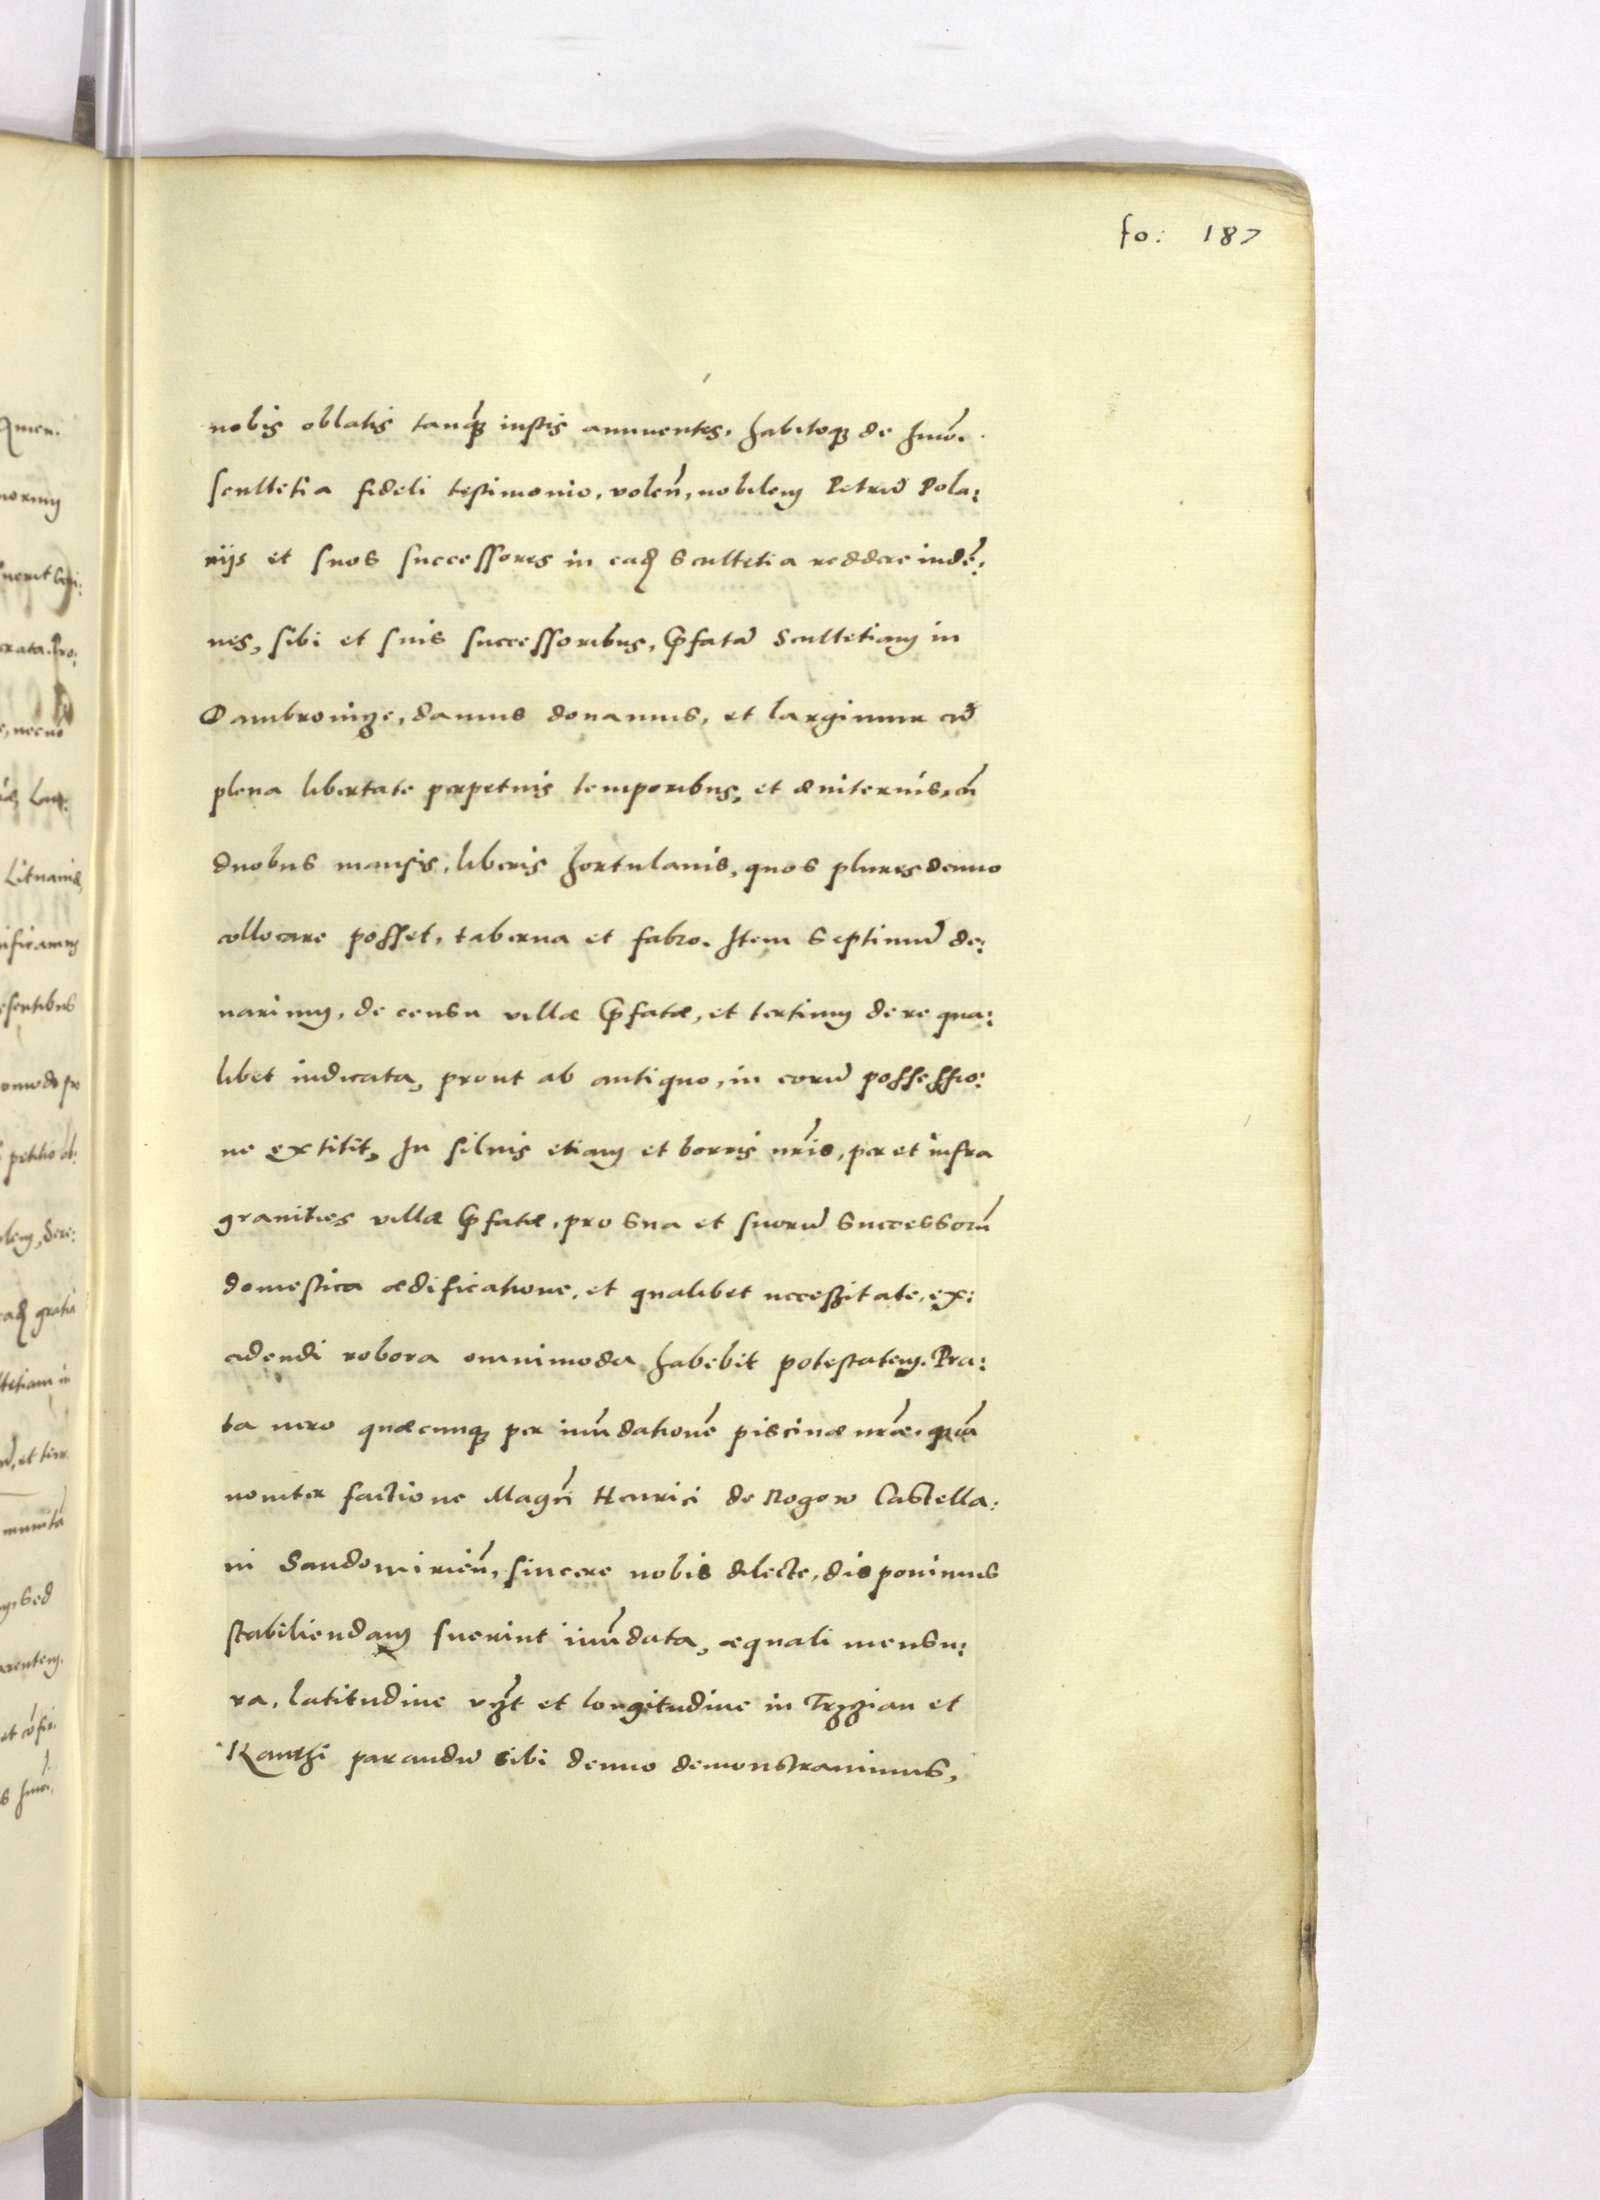 fo: 187
nobis oblatis tanq̃ȝ iustis annuentes, habitoqȝ de hmõi.
scultetia fideli testimonio, voleñ, nobilem Petrũ Pola:
nijs et suos successores in eadẽ scultetia reddere indẽ:
nes, sibi et suis successoribus, p̃fatã Scultetiam in
Dambrouize, damus donamus, et largimur cũ
plena libertate perpetuis temporibus, et æuiternis, cũ
duobus mansis, liberis hortulanis, quos plures denuo
collocare posset, taberna et fabro. Item septimũ de:
narium, de censu villæ p̃fatæ, et tertium de re qua:
libet iudicata, prout ab antiquo, in eorũ possessio:
ne extitit, In siluis etiam et borris nr̃is, per et infra
granities villæ p̃fatæ, pro sua et suorũ successorũ
domestica ædificatione, et qualibet necessitate, ex:
cidendi robora omnimoda habebit potestatem. Pra:
ta uero quæcunqȝ per inũdationẽ piscinæ nr̃æ, quã
nouiter factione Magc̃i Henrici de Rogow Castella:
ni Sandomirieñ, sincere nobis dilecte, disponimus
stabiliendam fuerint inũdata, æquali mensu:
ra, latitudine vꝫt et longitudine in Trzzian et
Kanthi parandũ sibi denuo demonstrauimus,
Lituaniæ,